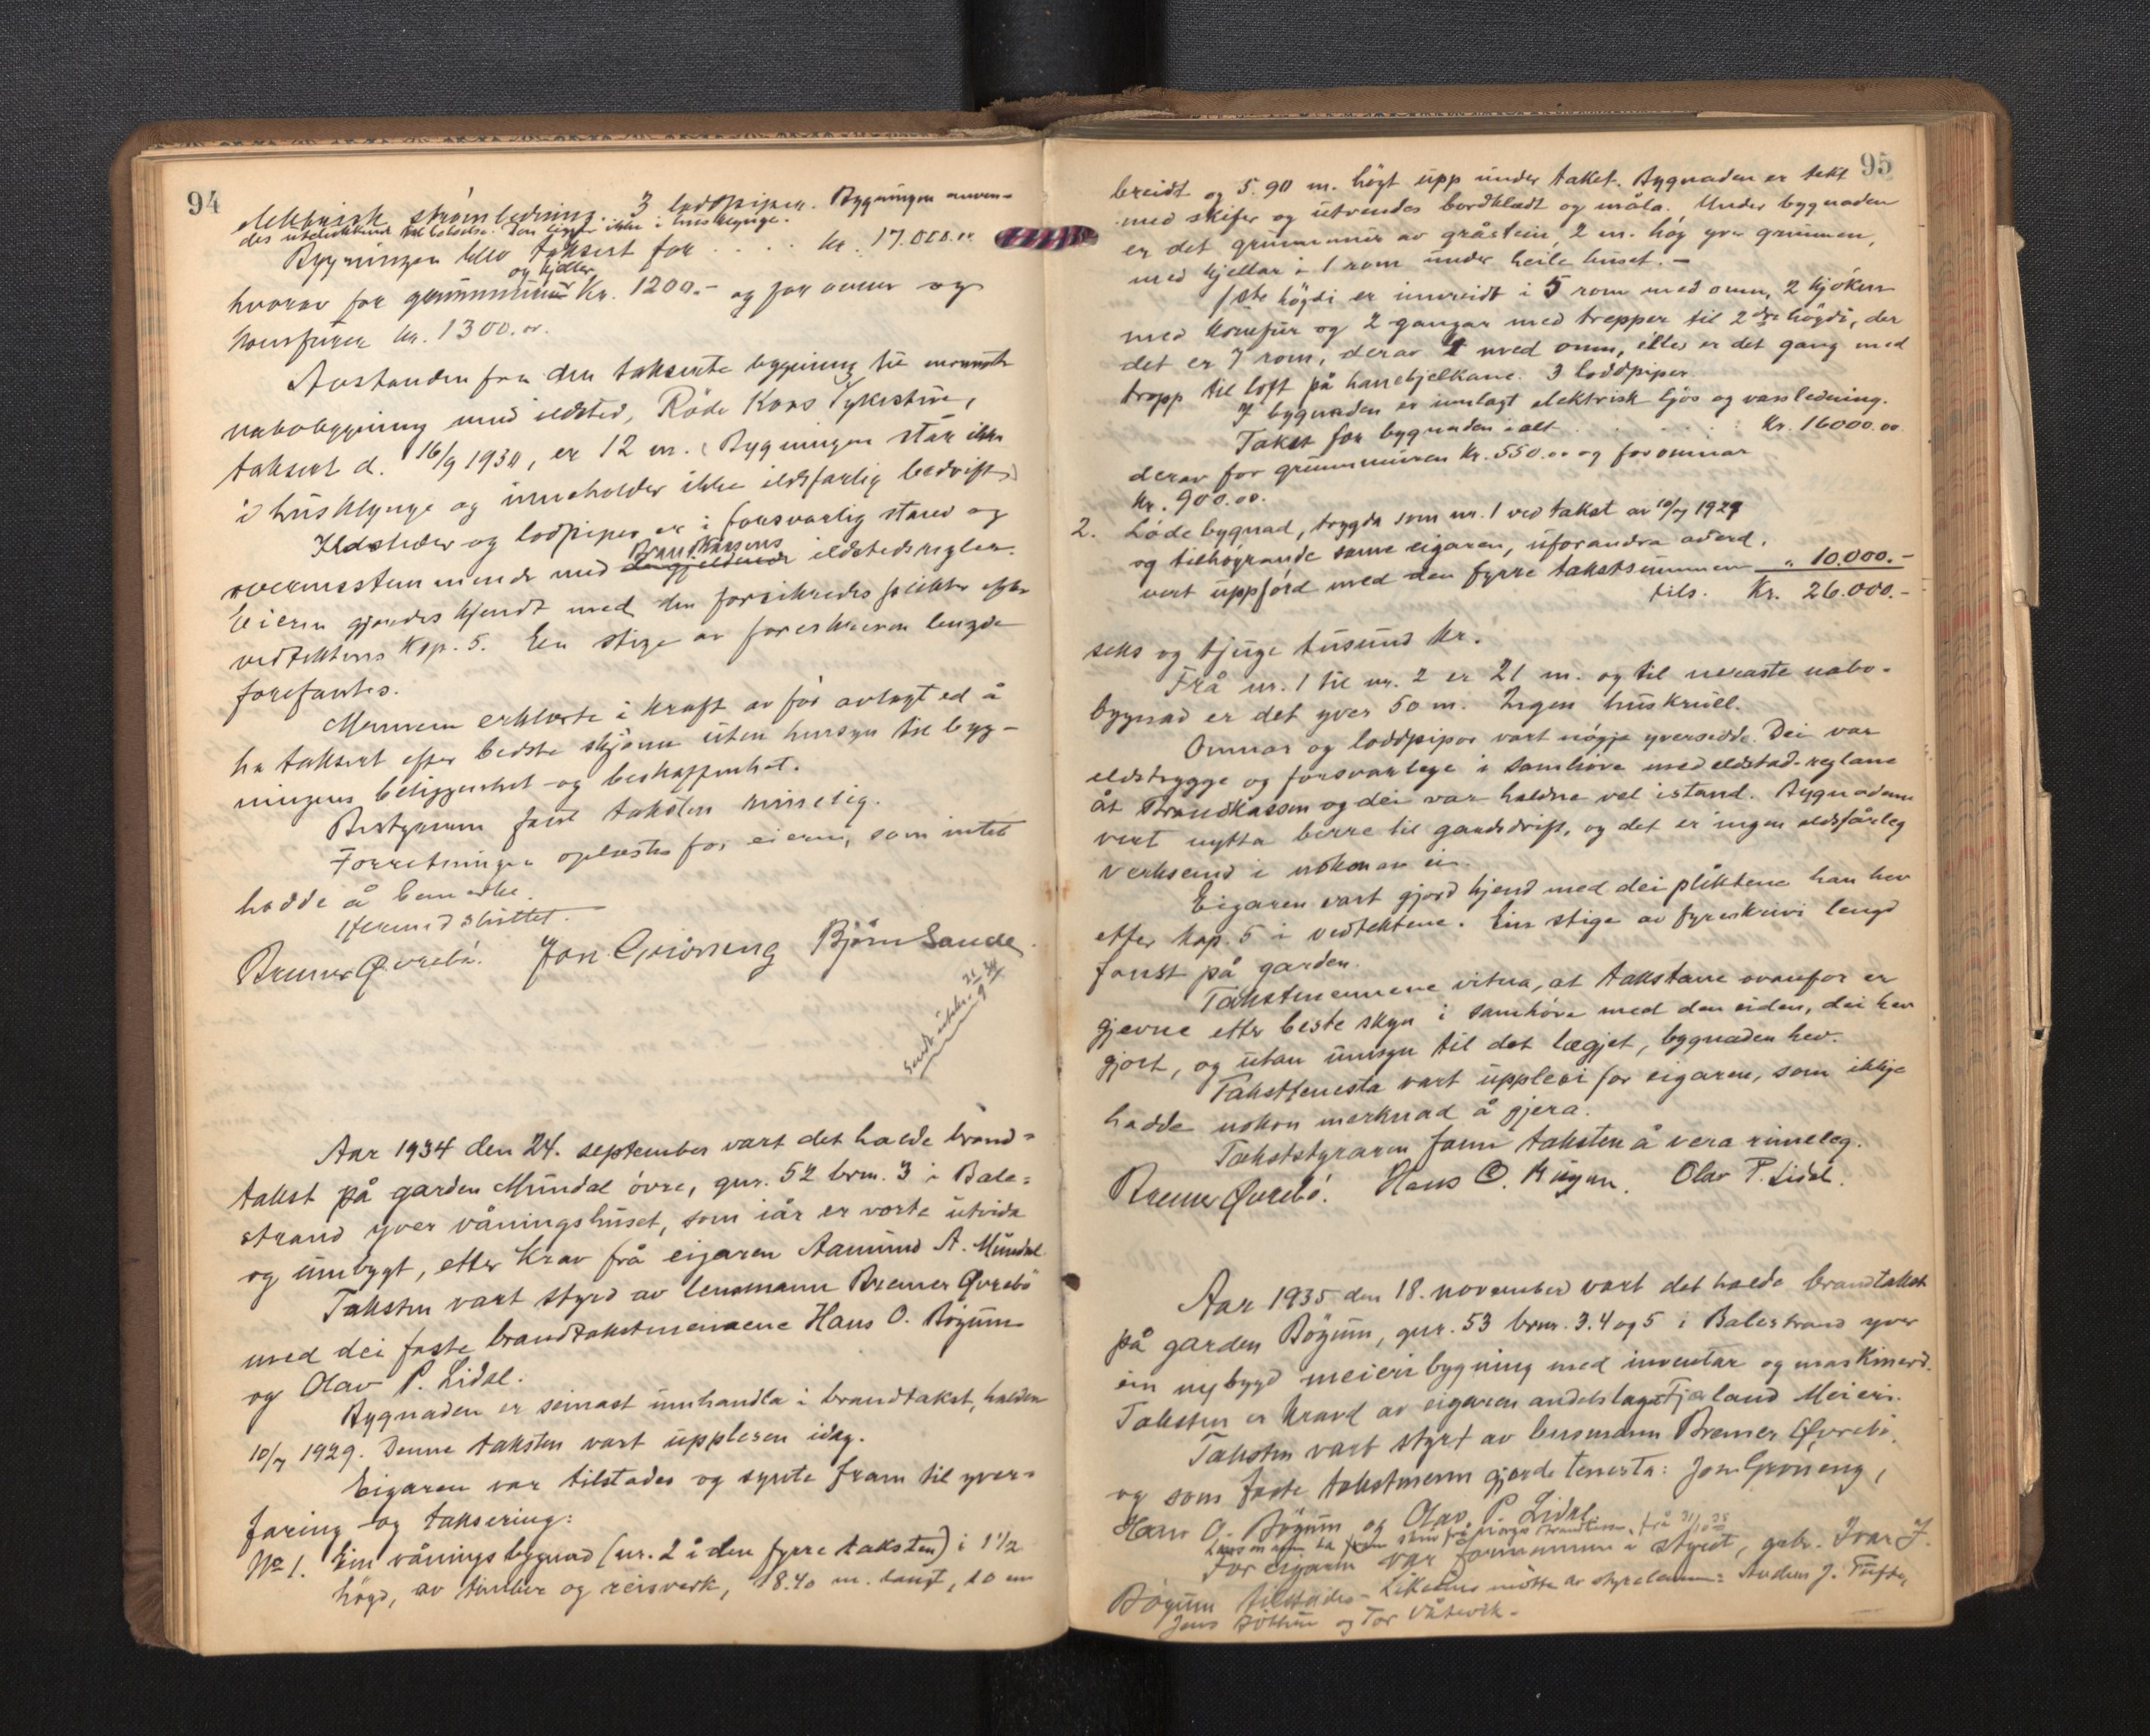 94
elektrisk strømledning. 3 lodpiper. Bygningen anven-
des utelukkende til beboelse. Den ligger ikke i husklynge.
Bygningen blev taksert for . . . . kr. 17.000.00
og kjeller
hvorav for grunnmur Kr. 1200.- og for ovner og
komfurer kr. 1300.00.
Avstanden fra den takserte bygning til nærmeste
nabobygning med ildsted, Røde Kors Sykestue,
taksert d. 16/9 1930, er 12 m. (Bygningen står ikke
i husklynge og inneholder ikke ildsfarlig bedrift.)
Ildsteder og lodpiper er i forsvarlig stand og
Brandkassens
overensstemmende med de gjeldende ildstedsregler.
Eieren gjordes kjendt med den forsikredes plikter efter
vedtektens Kap. 5. En stige av foreskreven lengde
forefantes.
Mennene erklærte i kraft av før avlagt ed å
ha taksert efter bedste skjønn uten hensyn til byg-
ningens beliggenhet og beskaffenhet.
Bestyreren fant taksten rimelig.
Forretningen oplæstes for eieren, som intet
hadde å bemerke.
Hermed sluttet.
Bremer Øvrebø. Jon Grøneng Bjørn Sande
Sendt utskr. 21/9 34
Aar 1934 den 24. september vart det halde brand-
takst på garden Mundal øvre, gnr. 52 brn. 3 i Bale-
strand yver våningshuset, som iår er vorte utvida
og umbygt, etter krav frå eigaren Aamund A. Mundal
Taksten vart styrd av lensmann Bremer Øvrebø
med dei faste brandtakstmennene Hans O. Bøyum
og Olav P. Lidal.
Bygnaden er seinast umhandla i brandtakst, halden
10/7 1929. Denne taksten vart upplesen idag.
Eigaren var tilstades og synte fram til yver-
faring og taksering:
No 1. Ein våningsbygnad (nr. 2 i den fyrre taksten) i 1 1/2
høgd, av timber og reisverk, 18.40 m. langt, 10 m
95
breidt og 5.90 m. høgt upp under taket. Bygnaden er tekt
med skifer og utvendes bordklædt og måla. Under bygnaden
er det grunnmur av gråstein, 2 m. høg yver grunnen,
med kjellar i 1 rom under heile huset. -
1ste høgdi er innreidt i 5 rom med omn, 2 kjøken
med komfur og 2 gangar med trepper til 2dre høgdi, der
det er 7 rom, derav 1 med omn, elles er det gang med
tropp til loft på hanebjelkane. 3 loddpiper.
I bygnaden er innlagt elektrisk ljos og vassledning.
Takst for bygnaden ialt . . . . . Kr. 16000.00
derav for grunnmuren Kr. 550.00 og for omnar
kr. 900.00.
2. Lødebygnad, trygda som nr. 1 ved takst av 10/7 1929
og tilhøyrande same eigaren, uforandra attved,
vert uppførd med den fyrre takstsummen " 10.000.-
tils. Kr. 26.000.-
seks og tjuge tusund kr.
Frå nr. 1 til nr. 2 er 21 m. og til næraste nabo-
bygnad er det yver 50 m. Ingen huskrull.
Omnar og loddpipor vart nøgje yversedde. Dei var
eldstrygge og forsvarlege i samhøve med eldstad-reglane
åt Brandkassen og dei var haldne vel istand. Bygnadene
vert nytta berre til gardsdrift, og det er ingen eldsfårleg
verksemd i nokon av ei.
Eigaren vart gjord kjend med dei pliktene han hev
etter kap. 5 i vedtektene. Ein stige av fyreskrivi lengd
fanst på garden.
Takstmennene vitna, at takstane ovanfor er
gjevne etter beste skyn i samhøve med den eiden, dei hev
gjort, og utan umsyn til det lægjet, bygnaden hev.
Taksttenesta vart upplesi for eigaren, som ikkje
hadde nokon merknad å gjera.
Takststyraren fann taksten å vera rimeleg.
Bremer Øvrebø. Hans O. Bøyum. Olav P. Lidal.
Aar 1935 den 18. november vart det halde brandtakst
på garden Bøyum, gnr. 53 brnr. 3.4 og 5 i Balestrand yver
ein nybygd meieribygning med inventar og maskineri.
Taksten er kravd av eigaren andelslaget Fjærland Meieri.
Taksten vart styrt av lensmann Bremer Øvrebø,
og som faste takstmenn gjorde tenesta: Jon Grøneng,
Hans O. Bøyum og Olav P. Lidal.
Lensmannen la fram skriv frå Norges Brandkasse, frå 31/10 35
For eigaren var formannen i styret, gbr. Ivar J.
Bøyum tilstades. Likeeins møtte av styrelemm: Anders J. Tufte,
Jens og Tor